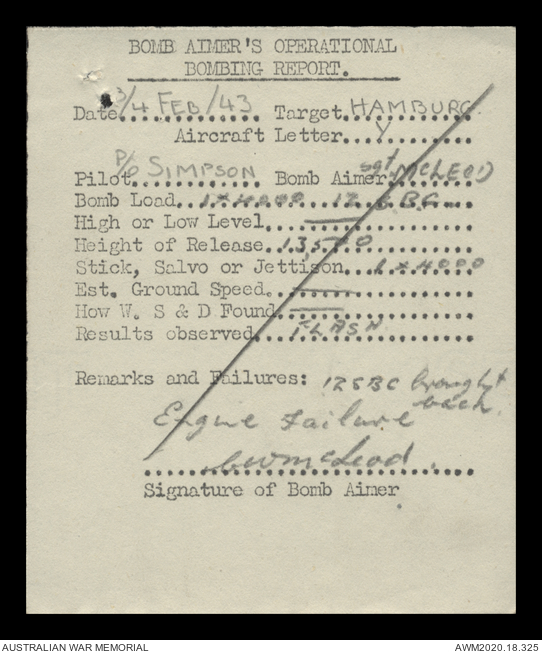 BOMB AIMER'S OPERATIONAL
BOMBING REPORT.
Date 3/4 FEB/43 Target HAMBURG
Aircraft Letter Y
Pilot P/O SIMPSON Bomb Aimer Sgt McLEOD
Bomb Load 1 x 4000 12 SBC
High or Low Level —
Height of Release 13,500
Stick, Salvo or Jettison 1 x 4000
Est. Ground Speed —
How W. S & D Found —
Results observed FLASH
Remarks and Failures: 12 SBC brought
back
Engine Failure
McLeod
Signature of Bomb Aimer
AUSTRALIAN WAR MEMORIAL AWM2020.18.325